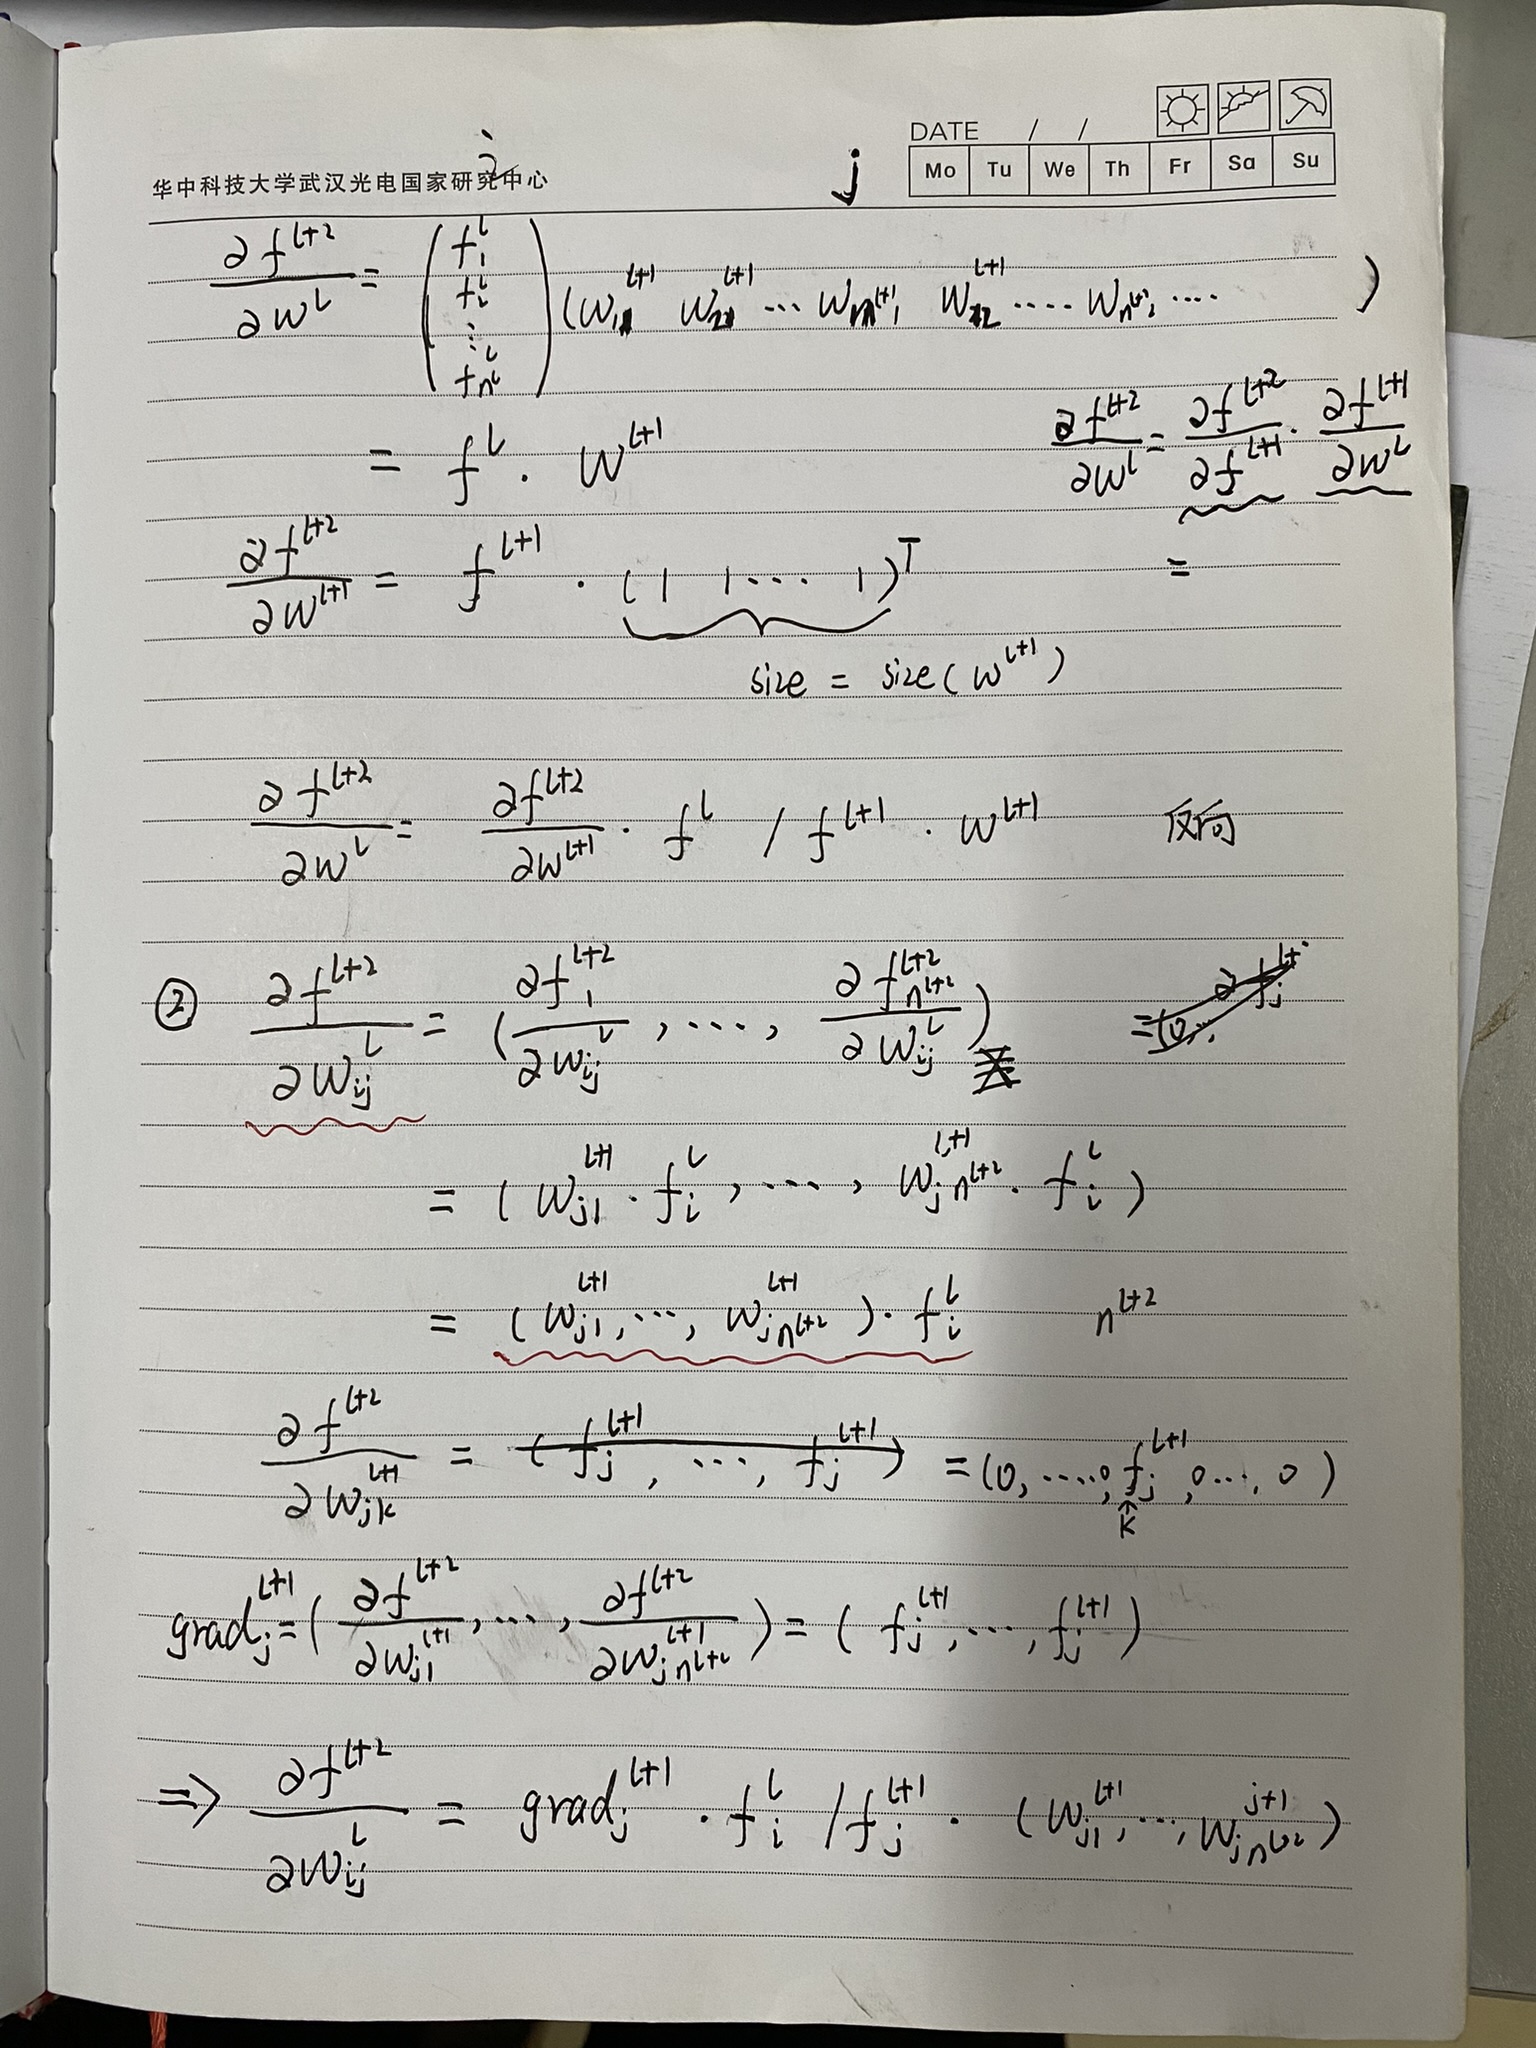 DATE / /
Mo Tu We Th Fr Sa Su
华中科技大学武汉光电国家研究中心
i j
∂f^{l+2}/∂w^l = (f_1^l f_i^l ⋮ f_{n^l}^l) (w_{11}^{l+1} w_{21}^{l+1} ... w_{n^{l+1}1}^{l+1} w_{22}^{l+1} ..... w_{n^{l+1}2} ....)
= f^l · w^{l+1}
∂f^{l+2}/∂w^l = ∂f^{l+2}/∂f^{l+1} · ∂f^{l+1}/∂w^l
=
∂f^{l+2}/∂w^{l+1} = f^{l+1} · (1 1 ... 1)^T
size = size(w^{l+1})
∂f^{l+2}/∂w^l = ∂f^{l+2}/∂w^{l+1} · f^l / f^{l+1} · w^{l+1} 反向
② ∂f^{l+2}/∂w_{ij}^l = (∂f_1^{l+2}/∂w_{ij}^l, ..., ∂f_{n^{l+2}}^{l+2}/∂w_{ij}^l)
= (w_{j1}^{l+1} · f_i^l, ..., w_{jn^{l+2}}^{l+1} · f_i^l)
= (w_{j1}^{l+1}, ..., w_{jn^{l+2}}^{l+1}) · f_i^l n^{l+2}
∂f^{l+2}/∂w_{jk}^{l+1} = (f_j^{l+1}, ..., f_j^{l+1}) = (0, ...., 0, f_j^{l+1}, 0 ..., 0)
k
grad_j^{l+1} = (∂f^{l+2}/∂w_{j1}^{l+1}, ..., ∂f^{l+2}/∂w_{jn^{l+2}}^{l+1}) = (f_j^{l+1}, ..., f_j^{l+1})
⇒ ∂f^{l+2}/∂w_{ij}^l = grad_j^{l+1} · f_i^l / f_j^{l+1} · (w_{j1}^{l+1}, ..., w_{jn^{l+2}}^{j+1})